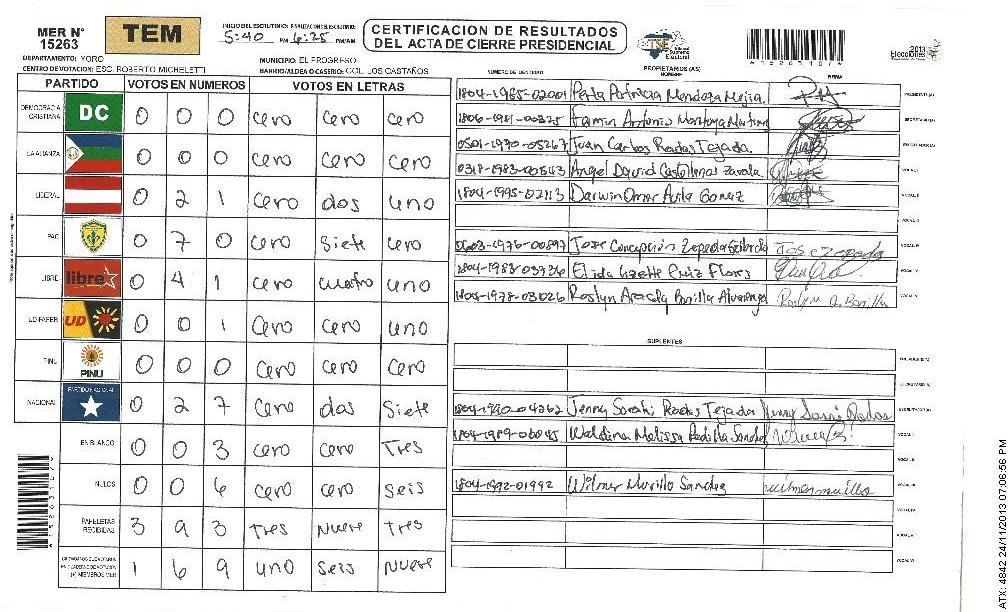 MER N° 15263
TEM
INICIO DEL ESCRUTINIO: FINALIZACION DEL ESCRUTINIO:
5:40 PM 6:25 PM/AM
CERTIFICACION DE RESULTADOS
DEL ACTA DE CIERRE PRESIDENCIAL
TSE Tribunal Supremo Electoral
2013 Elecciones
DEPARTAMENTO: YORO
MUNICIPIO: EL PROGRESO
CENTRO DE VOTACION: ESC. ROBERTO MICHELETTI
BARRIO/ALDEA O CASERIO: COL. LOS CASTAÑOS
PARTIDO VOTOS EN NUMEROS VOTOS EN LETRAS
DEMOCRACIA CRISTIANA DC 0 0 0 Cero Cero Cero
LA ALIANZA 0 0 0 Cero Cero Cero
LIBERAL 0 2 1 Cero dos uno
PAC 0 7 0 Cero Siete Cero
LIBRE libre 0 4 1 Cero cuatro uno
UD FAPER UD 0 0 1 Cero Cero uno
PINU PINU 0 0 0 Cero Cero Cero
NACIONAL PARTIDO NACIONAL 0 2 7 Cero dos Siete
EN BLANCO 0 0 3 cero Cero Tres
NULOS 0 0 6 Cero Cero Seis
PAPELETAS RECIBIDAS 3 9 3 Tres Nueve Tres
1 6 9 uno Seis Nueve
NUMERO DE IDENTIDAD
PROPIETARIOS (AS)
NOMBRE
FIRMA
1804-1985-02001 Perla Patricia Mendoza Mejia. PRESIDENTE (A)
1806-1981-00325 Fermin Antonio Montoya Martinez SECRETARIO (A)
0501-1990-05267 Juan Carlos Rodas Tejada. ESCRUTADOR (A)
0318-1983-00543 Angel David Castellanos Zavala. VOCAL I
1804-1995-02113 Darwin Omar Avila Gomez VOCAL II
VOCAL III
0603-1976-00897 Jose Concepción Zepeda VOCAL IV
1804-1983-03736 Elida Lizette Cruz Flores VOCAL V
1804-1978-03026 Roslyn Aracely Bonilla Alvarenga Roslyn A. Bonilla
SUPLENTES
PRESIDENTE (A)
SECRETARIO (A)
1804-1990-04262 Jenny Sarahi Rodas Tejada ESCRUTADOR (A)
1804-1989-06045 Waldina Melissa Padilla Sanchez VOCAL I
VOCAL II
1804-1992-01992 Wilmer Murillo Sanchez wilmer murillo VOCAL III
VOCAL IV
VOCAL V
VOCAL VI
ATX: 4842 24/11/2013 07:06:56 PM